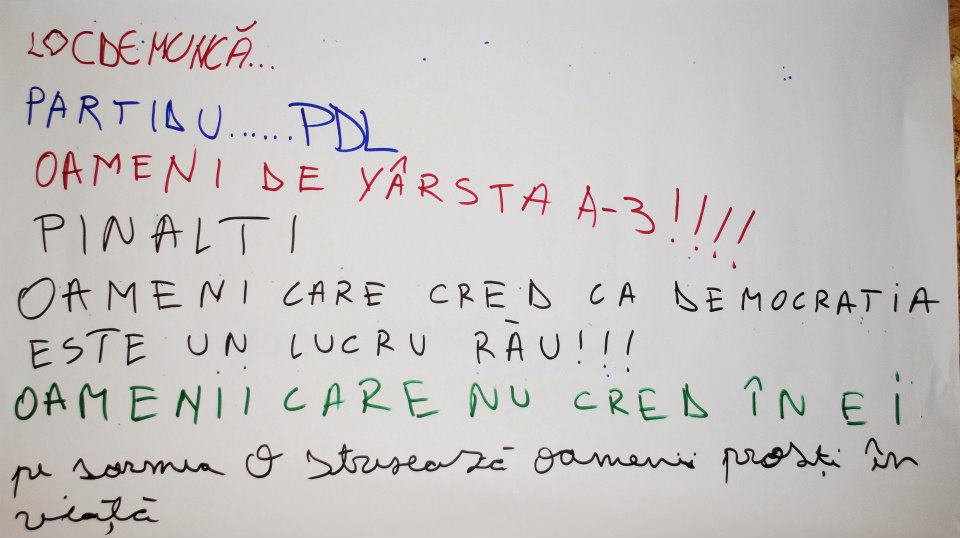 LOCDEMUNCĂ...
PARTIDU......PDL
OAMENI DE VÂRSTA A-3!!!!
PINALTI
OAMENI CARE CRED CA DEMOCRATIA
ESTE UN LUCRU RĂU!!!
OAMENII CARE NU CRED ÎN EI
pe sormea O strusează oamenii proști în
viață